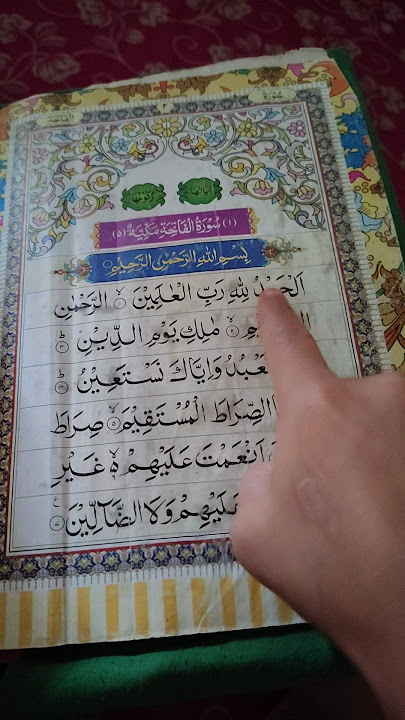 سُوْرَةُ الْفَاتِحَةِ مَكِّيَّةٌ (٥) (١)
بِسْمِ اللهِ الرَّحْمٰنِ الرَّحِيْمِ
اَلْحَمْدُ لِلّٰهِ رَبِّ الْعٰلَمِيْنَ ۙ﴿۱﴾ الرَّحْمٰنِ
مٰلِكِ يَوْمِ الدِّيْنِ ؕ﴿۳﴾
نَعْبُدُ وَاِيَّاكَ نَسْتَعِيْنُ ؕ﴿۴﴾
الصِّرَاطَ الْمُسْتَقِيْمَ ۙ﴿۵﴾ صِرَاطَ
اَنْعَمْتَ عَلَيْهِمْ ۙ۬ غَيْرِ
عَلَيْهِمْ وَلَا الضَّآلِّيْنَ